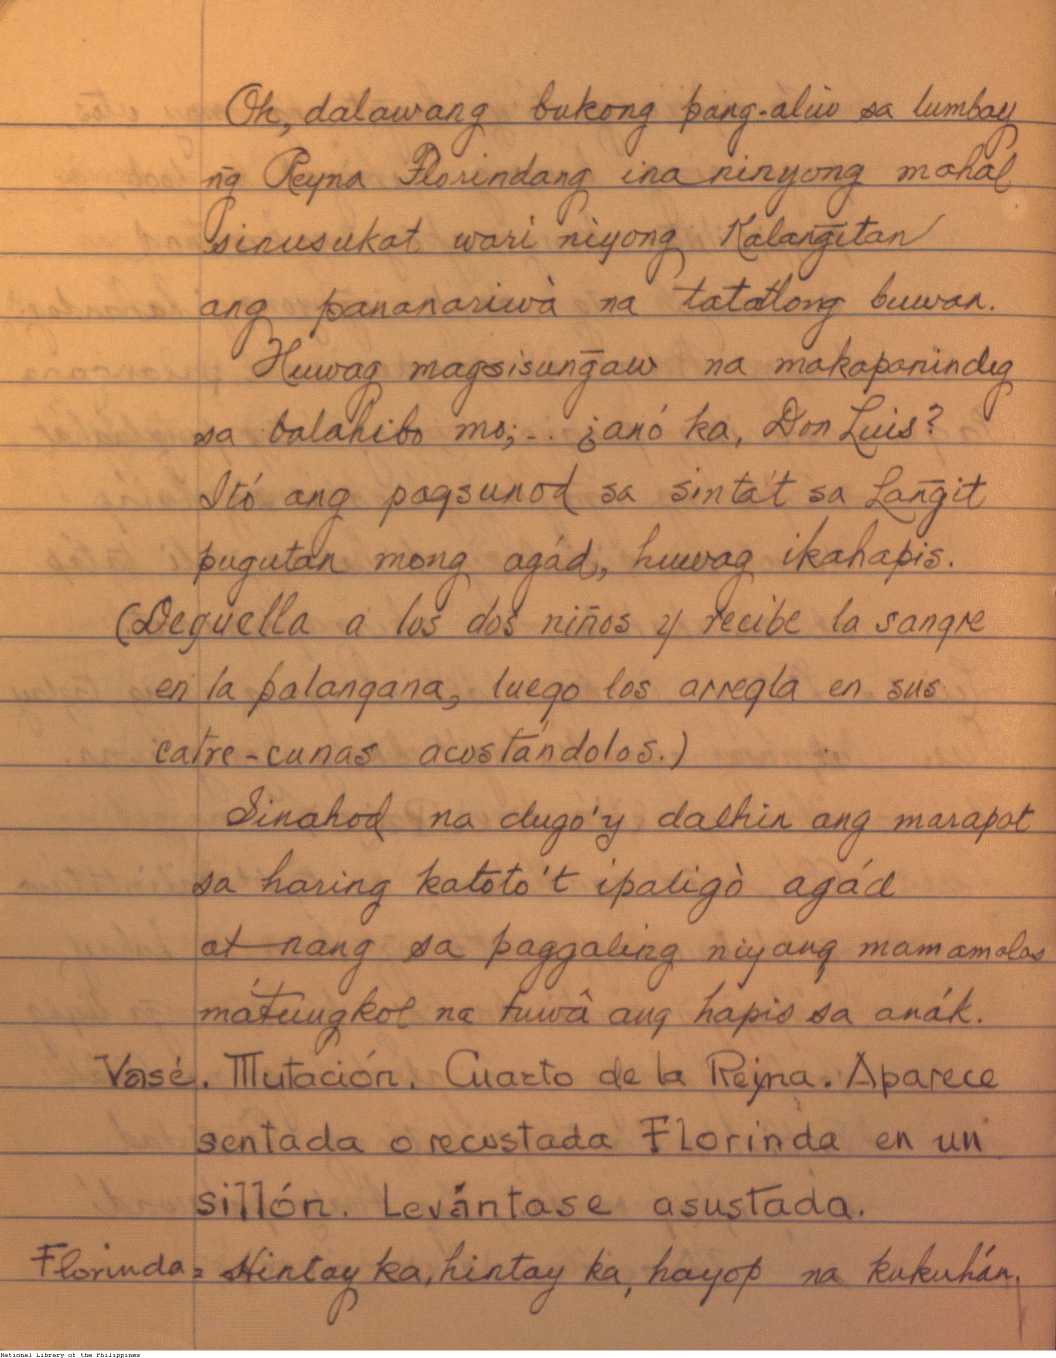 Oh, dalawang bukong pang-aliw sa lumbay
n̄g Reyna Florindang ina ninyong mahal
sinusukat wari niyong Kalan̄gitan
ang pananariwà na tatatlong buwan.
Huwag magsisun̄gaw na makapanindig
sa balahibo mo; .. ¿anó ka, Don Luis?
Itó ang pagsunod sa sinta't sa Lan̄git
pugutan mong agád, huwag ikahapis.
(Deguella a los dos niños y recibe la sangre
en la palangana, luego los arregla en sus
catre-cunas acostándolos.)
Sinahod na dugo'y dalhin ang marapat
sa haring katoto't ipaligò agád
at nang sa paggaling niyang mamamalas
mátungkol na tuwâ ang hapis sa anák.
Vasé. Mutación. Cuarto de la Rejna. Aparece
sentada o recostada Florinda en un
sillón. Levántase asustada.
Florinda = Hintay ka, hintay ka, hayop na kukuhán,
National Library of the Philippines